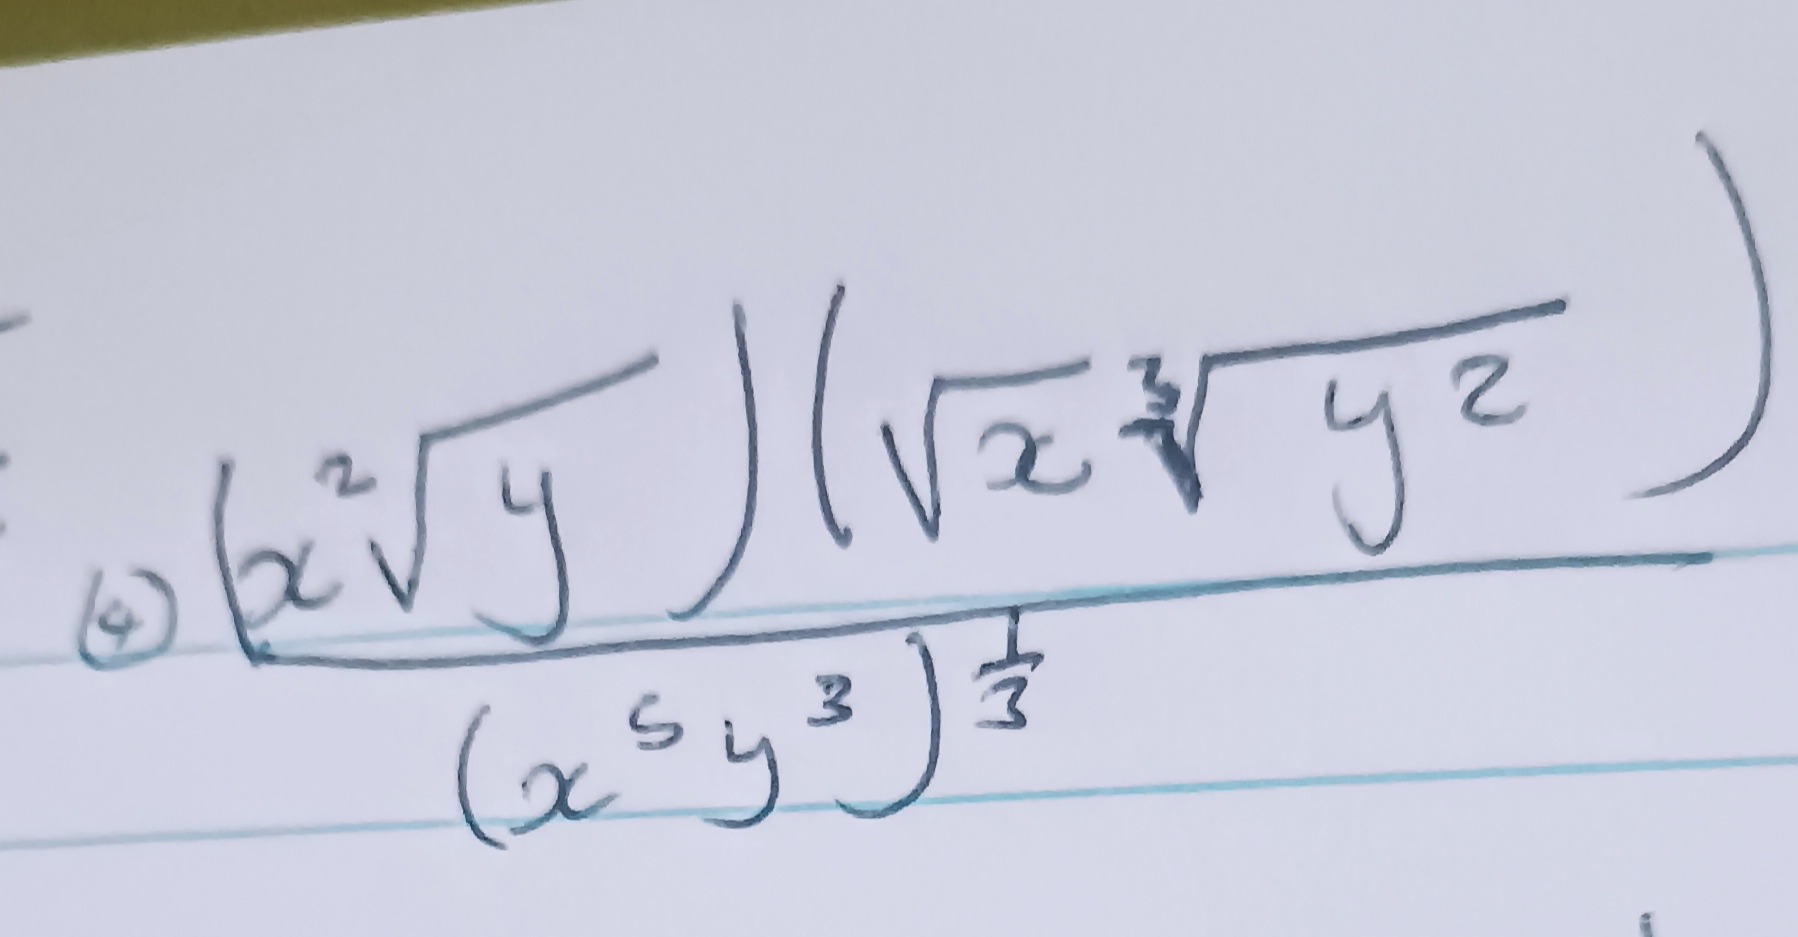 (4) (x²√y)(√x ∛y²)
(x⁵y³)^(1/3)